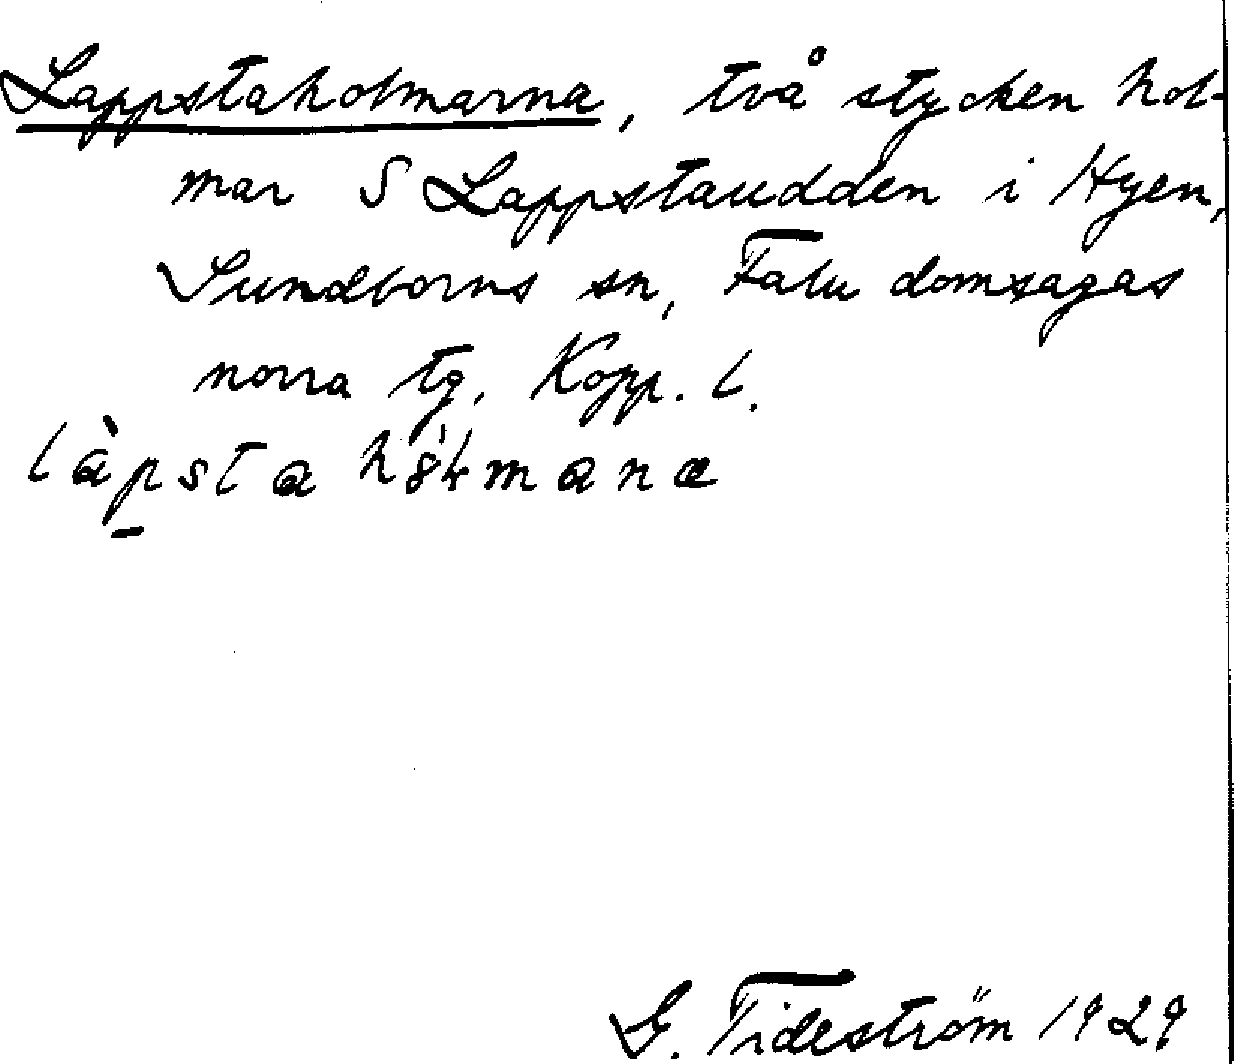 Lappstaholmarna, två stycken hol-
mar S Lappstaudden i Hyen,
Sundborns sn, Falu domsagas
norra tg, Kopp. l.
làpsta
G. Tideström 1929